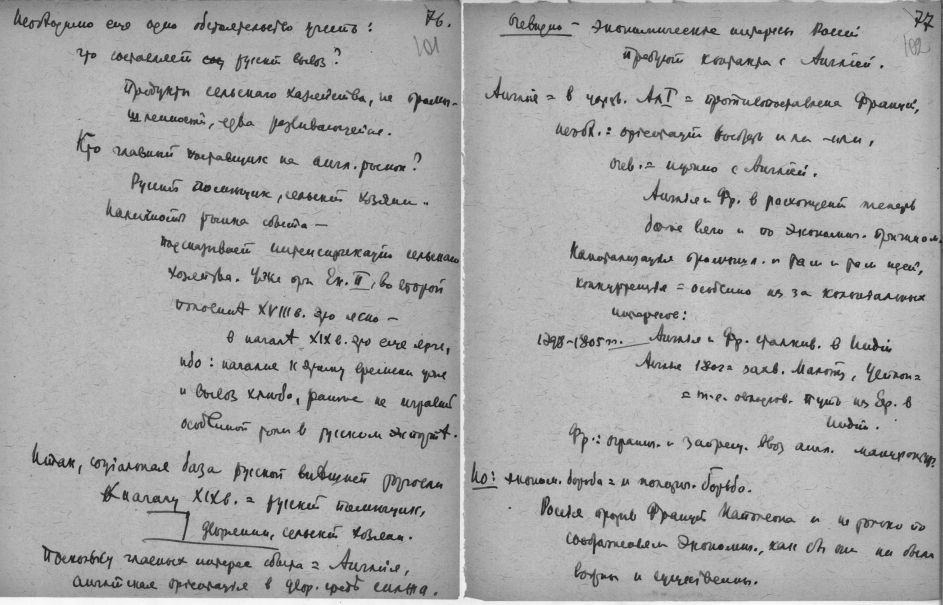 76.
101
Необходимо еще одно обстоятельство учесть:
что составляет русский вывоз?
Продукты сельского хозяйства, не промы-
шленности, едва развивающейся.
Кто главный поставщик на англ. рынок?
Русский помещик, сельский хозяин.
Наличность рынка сбыта —
подсказывает интенсификацию сельского
хозяйства. Уже при Ек. II, во второй
половинѣ XVIII в. это ясно —
в началѣ XIX в. это еще ярче,
ибо: начался к этому времени уже
и вывоз хлеба, раньше не игравший
особенной роли в русском экспортѣ.
Итак, социальная база русской внѣшней торговли
к началу XIX в. = русский помещик,
дворянин, сельский хозяин.
Поскольку главный интерес сбыта = Англия,
английская ориентация в двор. средѣ сильна.
77
102
Очевидно — экономические интересы России
требуют контакта с Англией.
Англия = в царств. Ал I = противопоставлена Франции,
необх.: ориентация всегда или – или,
очев. = нужно с Англией.
Англия и Фр. в расхождении теперь
более всего и по экономич. причинам.
Капитализация промышл. и там и там идет,
конкуренция = особенно из за колониальных
интересов:
1798–1805 гг. Англия и Фр. сталкив. в Индии
Англия 1802 = захв. Мальту, Цейлон =
= т.е. овладев. путь из Евр. в
Индию.
Фр.: огранич. и запрещ. ввоз англ. мануфактур.
Но: эконом. борьба = и политич. борьба.
Россия против Франции Наполеона и не только по
соображениям экономич., как бы они ни были
важны и существенны.